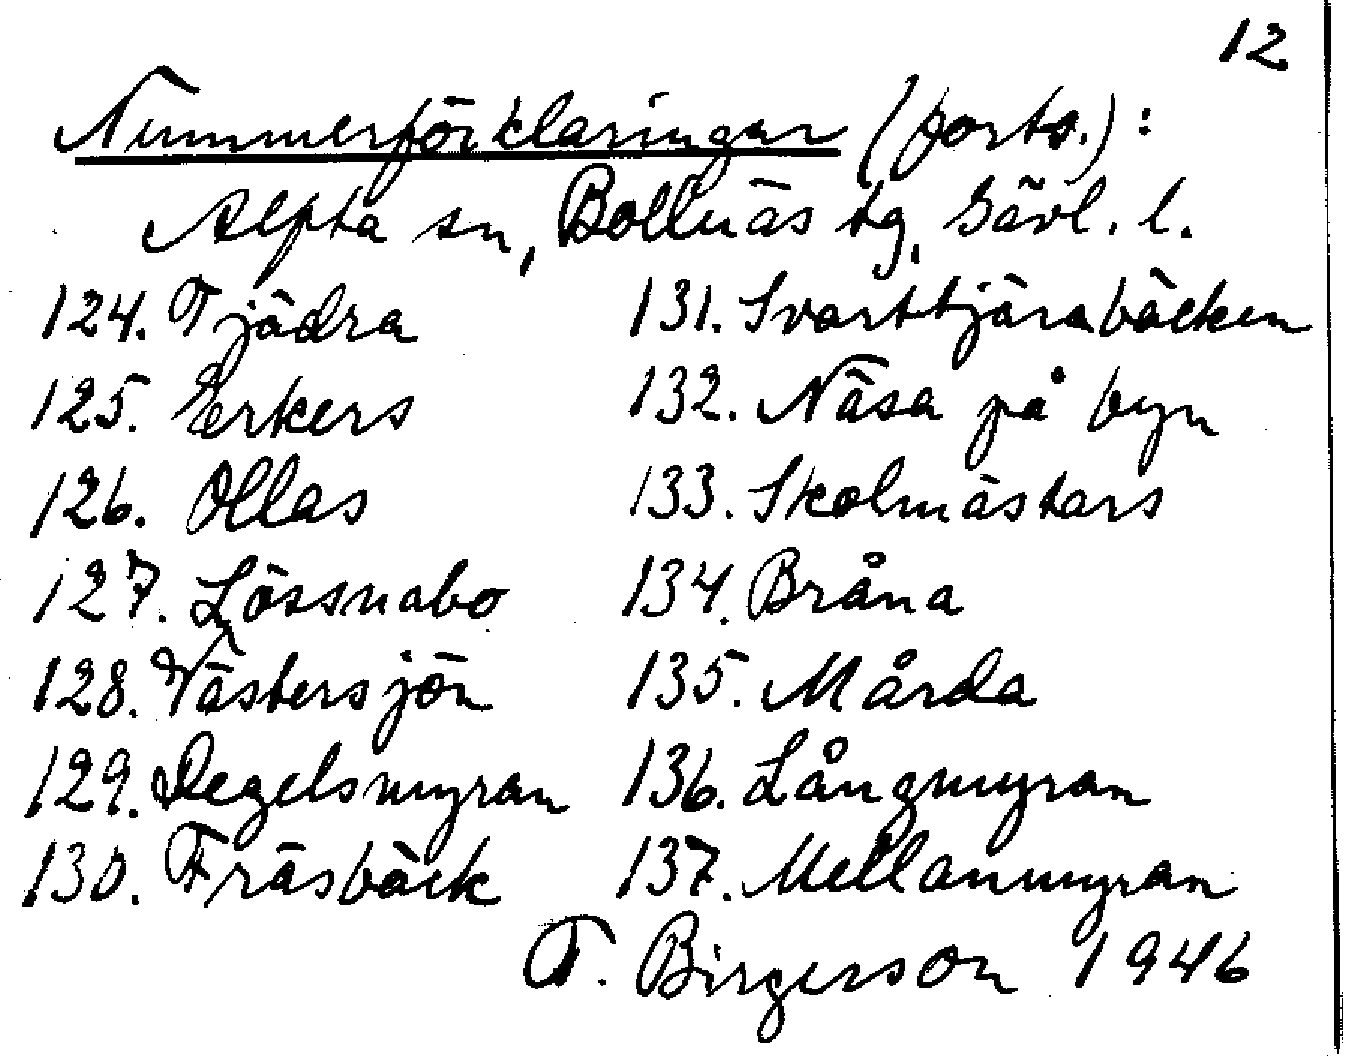 12
Nummerförklaringar (forts.):
Alfta sn, Bollnäs tg, Gävl. l.
124. Tjädra 131. Svarttjärabäcken
125. Erkers 132. Näsa på byn
126. Ollas 133. Skolmästars
127. Lössnabo 134. Bråna
128. Västersjön 135. Mårda
129. Degelsmyran 136. Långmyran
130. Fräsbäck 137. Mellanmyran
T. Birgerson 1946